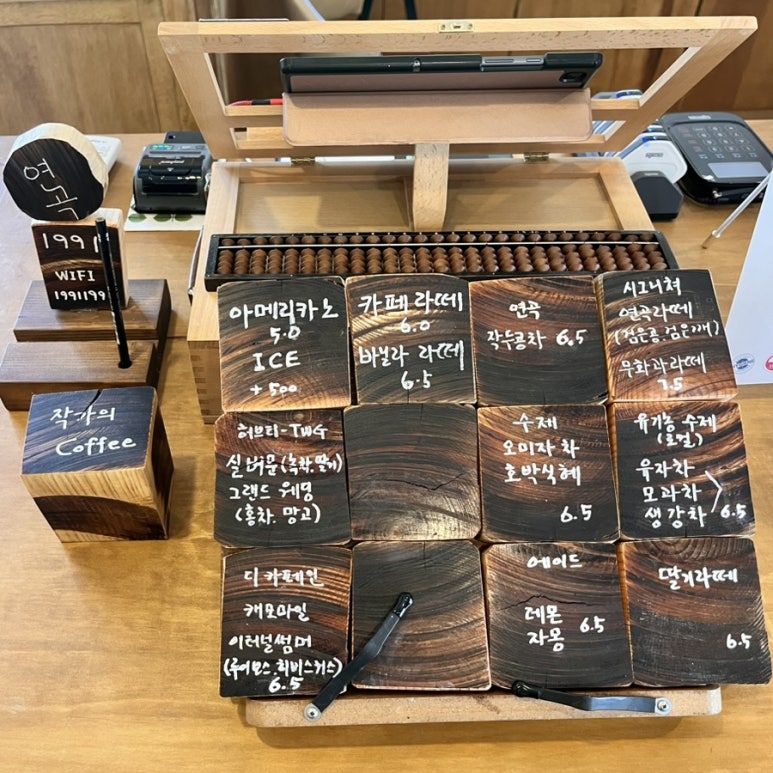 연곡
1991
WIFI
19911991
작가의
Coffee
아메리카노
5.0
ICE
+500
카페라떼
6.0
바닐라 라떼
6.5
연곡
작두콩차 6.5
시그니쳐
연곡라떼
(검은콩.검은깨)
무화과라떼
7.5
허브티-TWG
실버문(녹차,딸기)
그랜드 웨딩
(홍차.망고)
수제
오미자차
호박식혜
6.5
유기농 수제
(로컬)
유자차
모과차
생강차 6.5
디카페인
캐모마일
이터널썸머
(루이보스.히비스커스)
6.5
에이드
레몬
자몽 6.5
딸기라떼
6.5